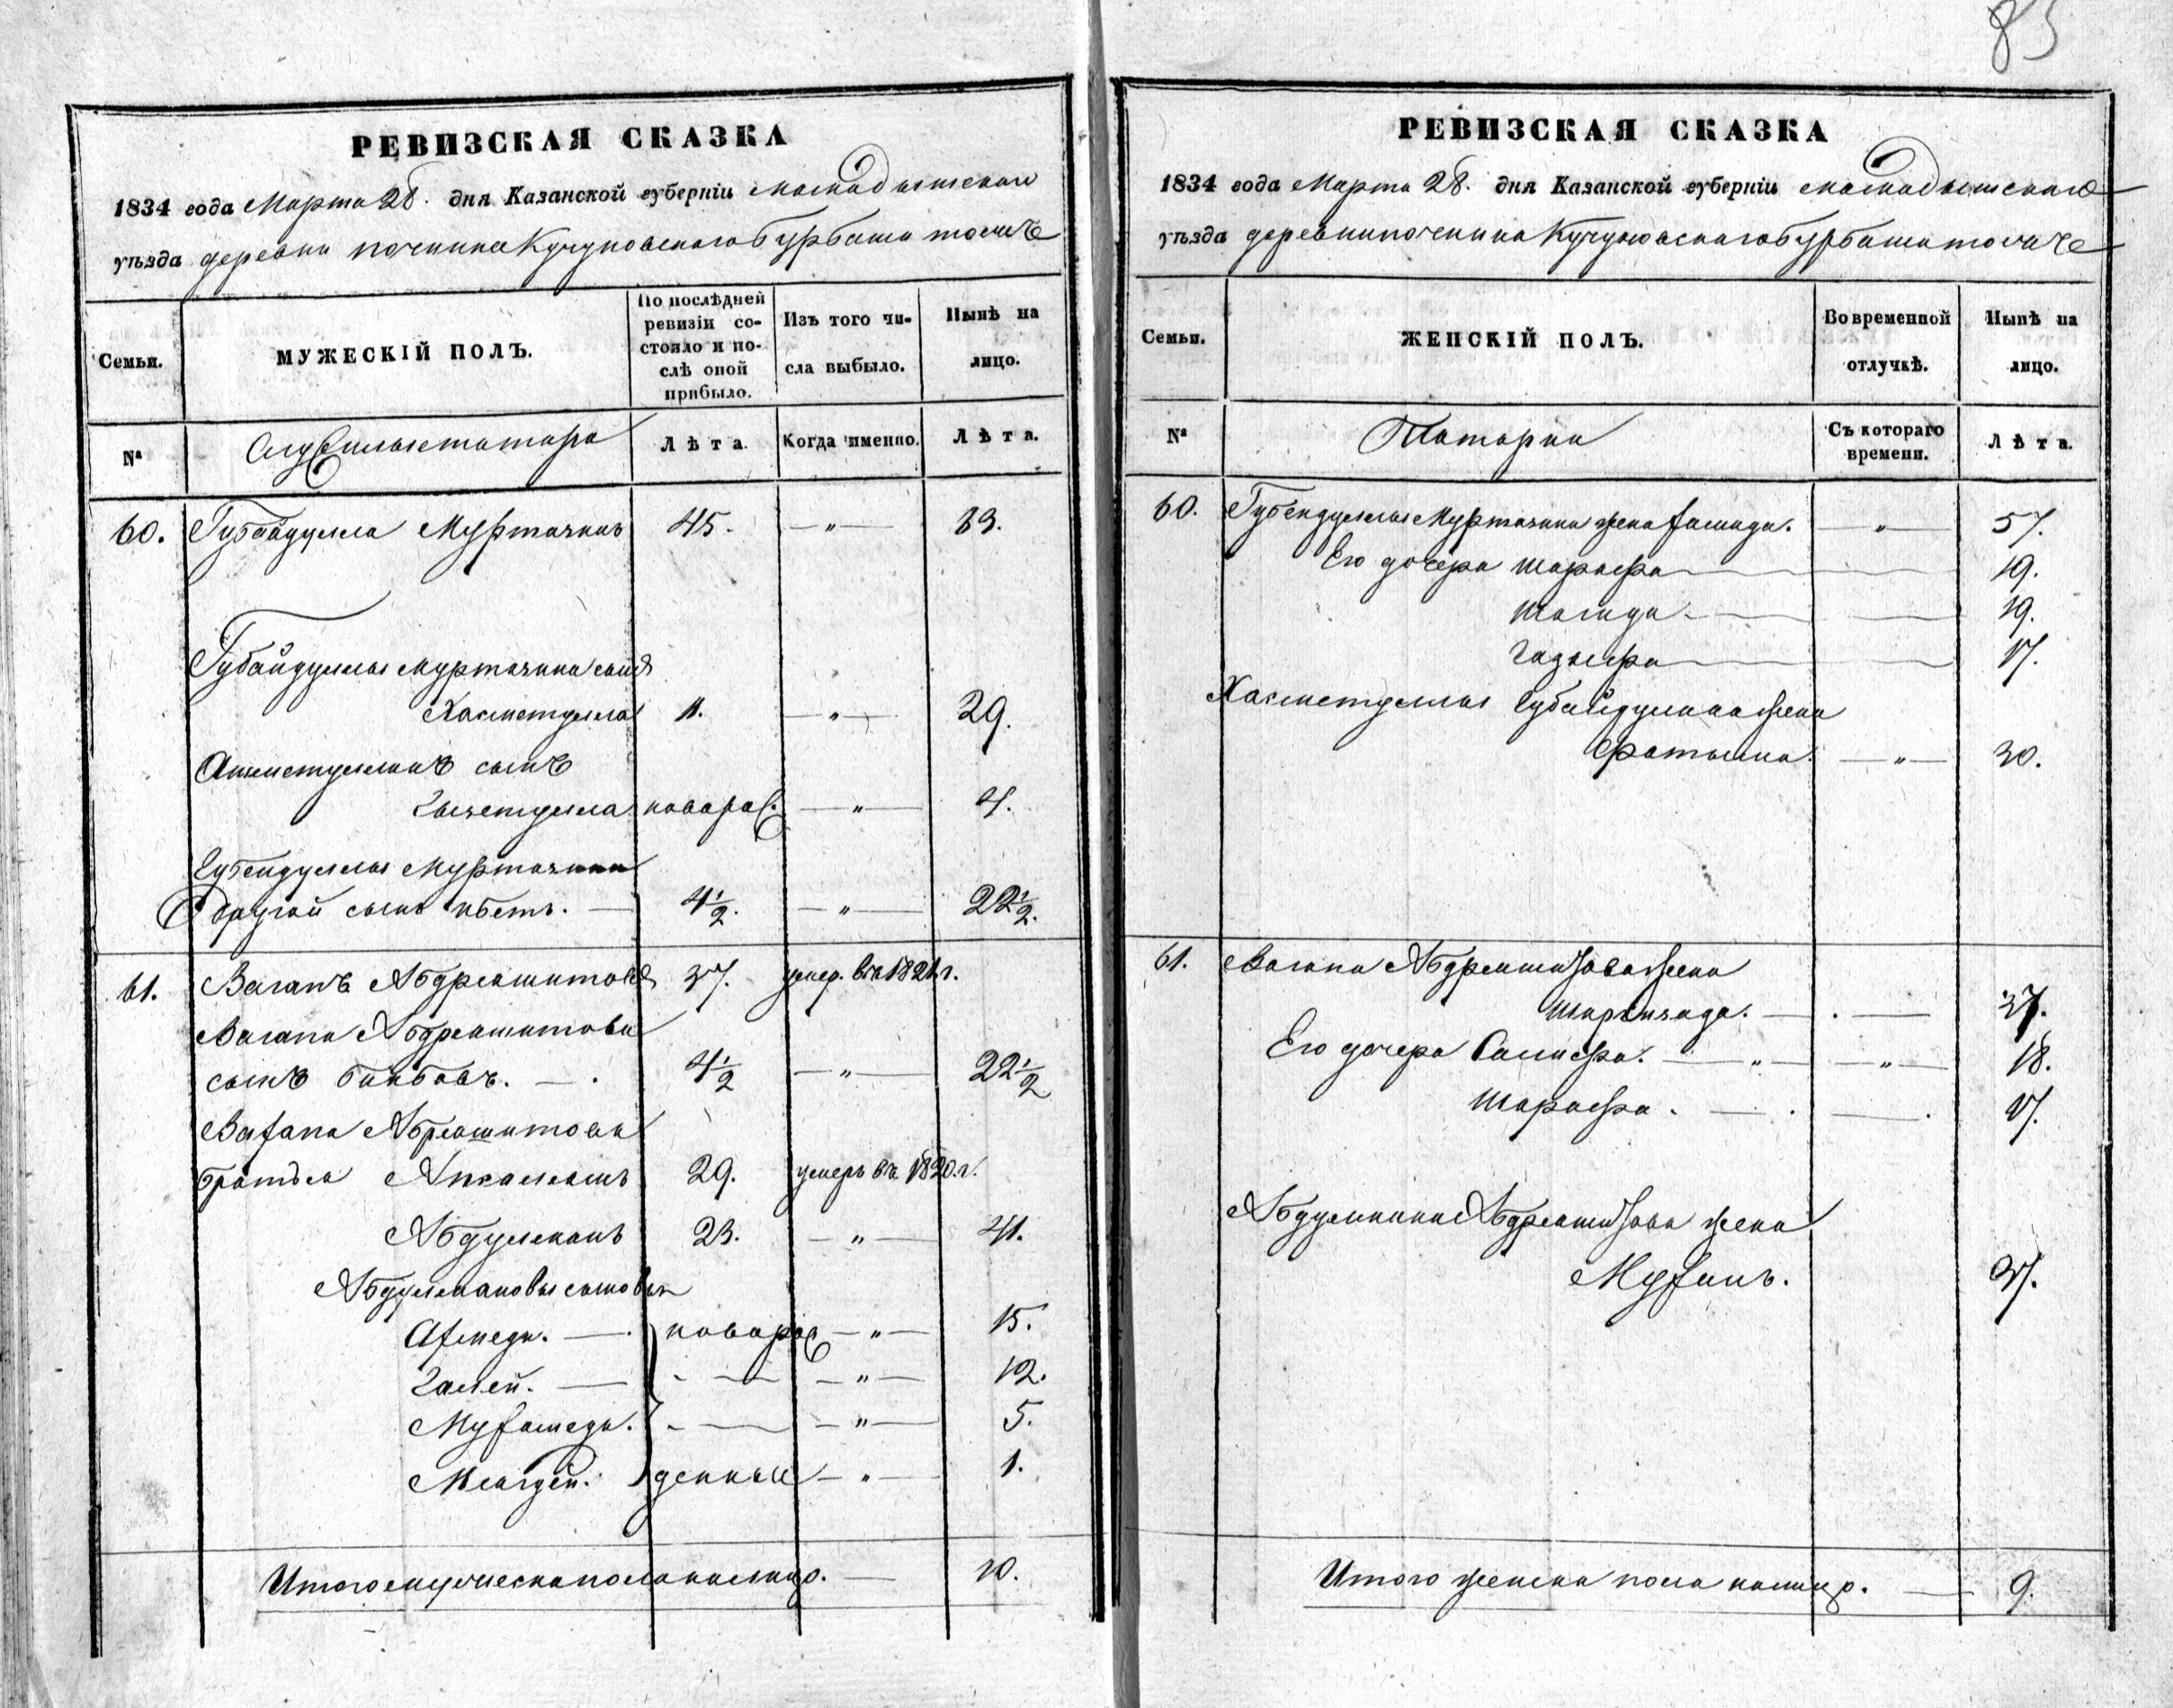 83
РЕВИЗСКАЯ СКАЗКА
1834 года Марта 28. дня Казанской губерніи Мамадышскаго
уѣзда деревни починка Кучуковскаго Бурбаша тожъ
Семьи.
МУЖЕСКІЙ ПОЛЪ.
По послѣдней ревизіи со-
стояло и по-
слѣ оной
прибыло.
Изъ того чи-
сла выбыло.
Нынѣ на
лицо.
№
Служилые татара
Лѣта.
Когда именно.
Лѣта.
60. Губайдулла Муртазинъ 45. —"— 63.
Губайдуллы Муртазина сынъ
Хаметулла 11. —"— 29.
Ахметуллинъ сынъ
новорож. —"— 4.
Губейдуллы Муртазина
другой сынъ 4½. —"— 22½.
61. Ваганъ Абдрешитовъ 37. умер. въ 1821 г.
Вагапа Абдрешитова
сынъ 4½ —"— 22½
Вагапа Абрешитова
братья 29. умеръ въ 1820. г.
Абдулманъ 23. —"— 41.
Абдулмановы сыновья
Ахмеди. — новорож —"— 15.
Галей. — - — —"— 12.
Мухамеди. - — —"— 5.
денные —"— 1.
Итого мужеска пола на лицо. — 10.
РЕВИЗСКАЯ СКАЗКА
1834 года Марта 28. дня Казанской губерніи Мамадышскаго
уѣзда деревни починка Кучуковскаго Бурбаша тоже
Семьи.
ЖЕНСКІЙ ПОЛЪ.
Во временной
отлучкѣ.
Нынѣ на
лицо.
№
Татарки
Съ котораго
времени.
Лѣта.
60. Губейдуллы Муртазина жена Хамида. —"— 57.
Его дочери Шарифа — 19.
Шагида — 19.
Газыфа — 17.
Хаметуллы Губайдулина жена
Фатыма. —"— 30.
61. Вагапа Абдрешитова жена
37.
Его дочери Салифа. —"— —"— 18.
Шарафа. — . — . 17.
Абдулмана Абдрешитова жена
37.
Итого женска пола на лицо. — 9.